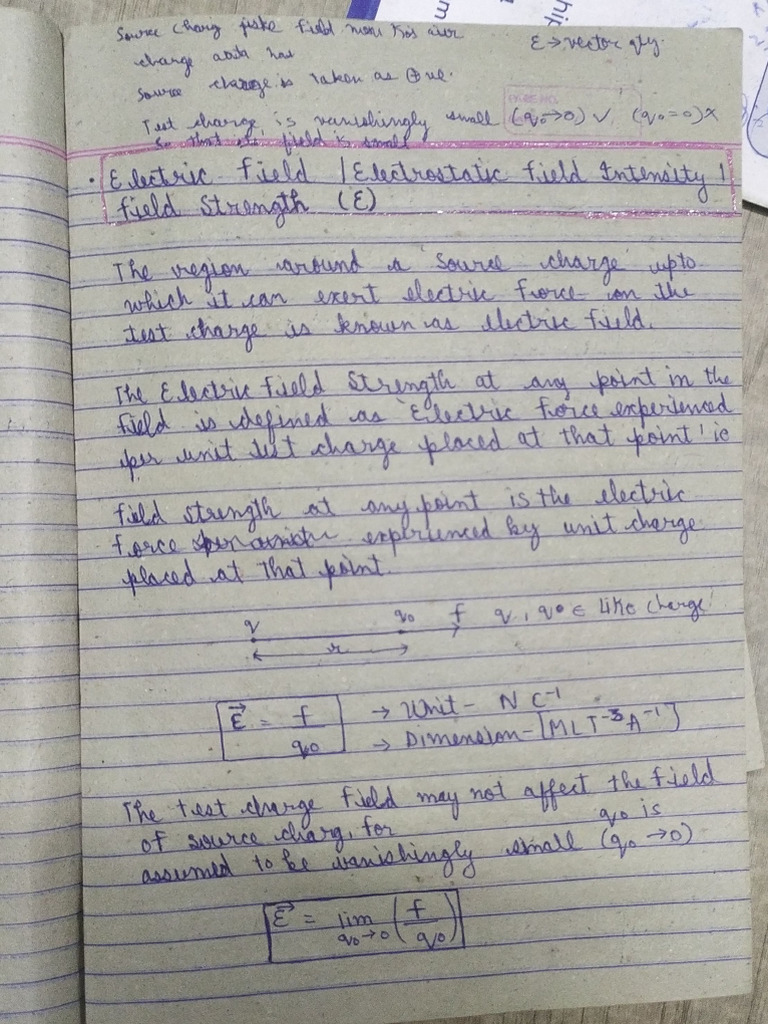 Source charg jiske field mein kis aur
E → vector qty.
charge
source charge is taken as ⊕ve.
Test charge is vanishingly small (q₀→0) ✓, (q₀=0)×
so that its field is small
• Electric field / Electrostatic field Intensity /
field Strength (E)
The region around a 'source charge' upto
which it can exert electric force on the
test charge is known as electric field.
The Electric field Strength at any point in the
field is defined as 'Electric force experienced
per unit test charge placed at that point' ie
field strength at any point is the electric
force experienced by unit charge
placed at that point.
q q₀ f q, q₀ ∈ like charge
r
E⃗ = f/q₀ → Unit - N C⁻¹
→ Dimension - [MLT⁻³A⁻¹]
The test charge field may not affect the field
of source charg, for q₀ is
assumed to be vanishingly small (q₀→0)
E⃗ = lim q₀→0 (f/q₀)